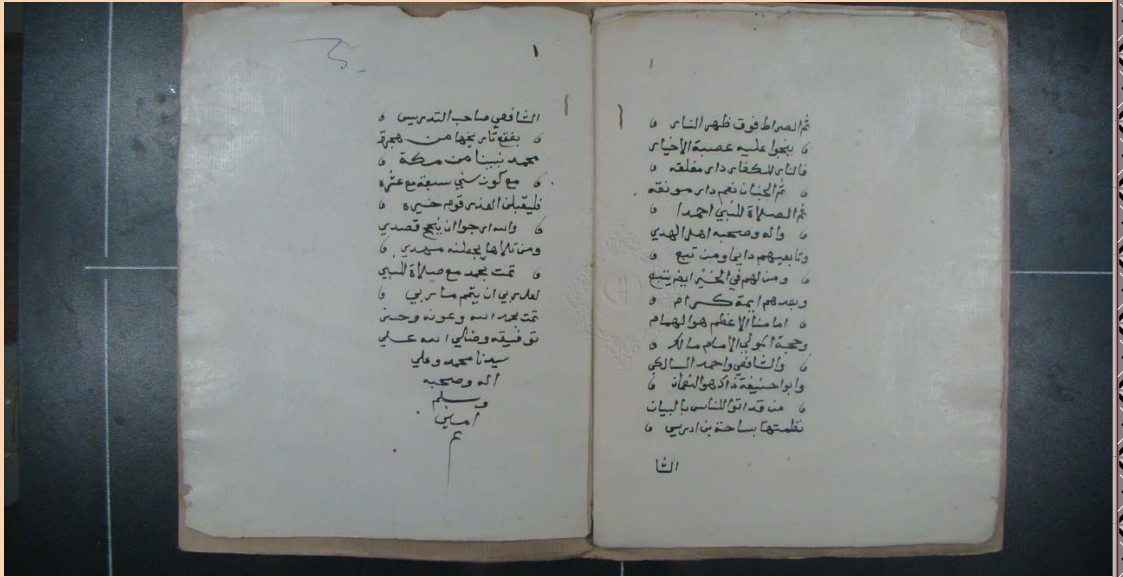 ١
ثم الصراط فوق ظهر النار
ينجوا عليه عصبة الاخيار
فالنار للكفار دار مغلقه
ثم الجنان نعم دار مونقه
ثم الصلاة للنبي احمدا
واله وصحبه اهل الهدي
وتابعيهم دايما ومن تبع
ومن لهم في الخير ايض يتبع
وبعدهم ايمة كرام
امامنا الاعظم هو الهمام
وحجة المولي الامام مالك
والشافعي واحمد السالكي
وابوا حنيفة ذاك هو النعمان
من قد اتوا للناس بالبيان
نظمتها بساحة بن ادريس
الشا
١
الشافعي صاحب التدريس
تاريخها من هجرة
محمد نبينا من مكة
مع كون سني سبعة مع عشره
فليقبلن العذر قوم خيره
والله ارجوا ان ينجح قصدي
ومن تلاها يجعلنه مهدي
تمت بحمد مع صلاة للنبي
لعل ربي ان يتمم مئاربي
تمت بحمد الله وعونه وحسن
توفيقه وصلي الله علي
سيدنا محمد وعلي
اله وصحبه
وسلم
امين
م